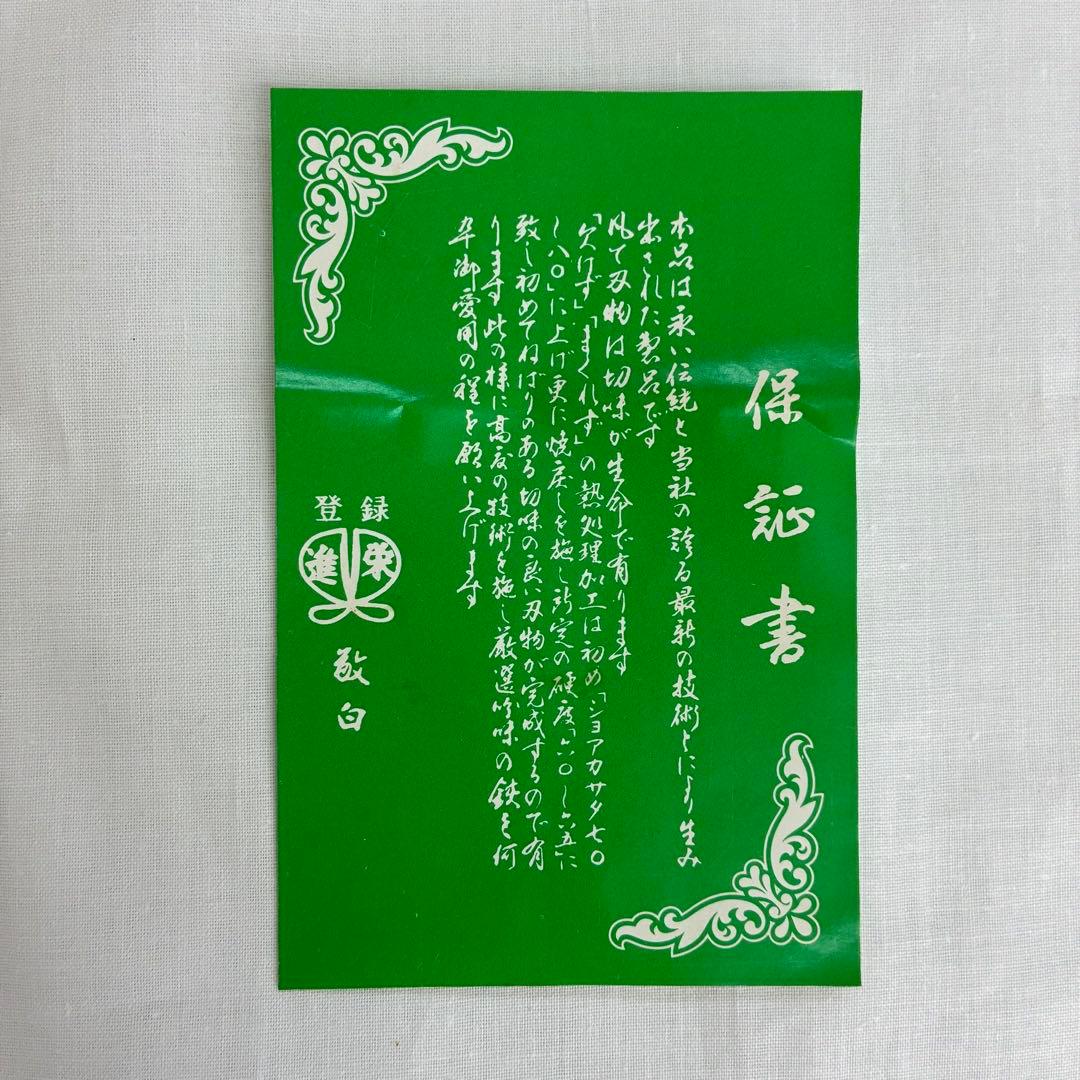 保証書
本品は永い伝統と当社の誇る最新の技術とにより生み
出された製品です
凡て刃物は切味が生命で有ります
「欠けず」「まくれず」の熱処理加工は初め「ショアカサタ七〇
〜八〇」に上げ更に焼戻しを施し所定の硬度「六〇〜六五」に
致し初めてねばりのある切味の良い刃物が完成するので有
ります此の様に高度の技術を施し厳選吟味の鋏を何
卒御愛用の程を願い上げます
登録
進栄
敬白